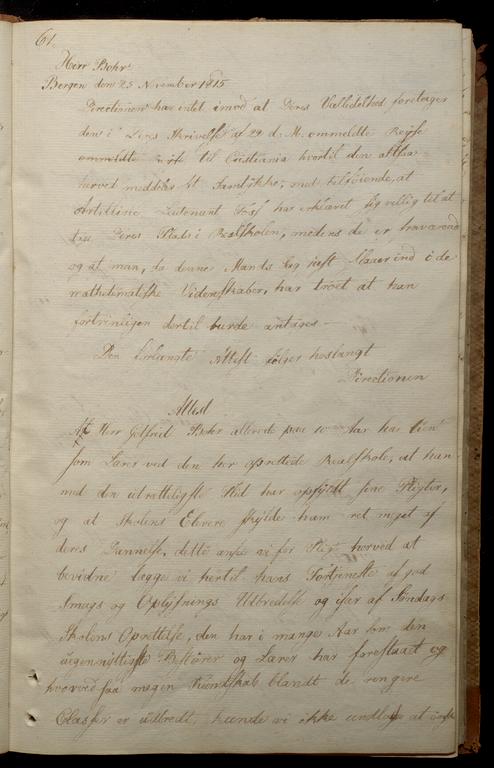 61.
Herr Bohr
Bergen den 25 November 1815
Directionen har intet imod at Deres Velædelhed foretager
den i Deres Skrivelse af 29 d. M. ommeldte Reise
ommeldte til Cristiania hvortil den altsaa
herved meddeles sit Samtykke, med tilføiende, at
Artillerie Lieutenant has erklæret sig villig til at
Deres Plads i Realskolen, medens de er fraværend
og at man, da denne Mands i de
mathematiske Videnskaber, har troet at han
fortrinligen dertil burde antages —
Den forlangte Attest følger hoslangt
Directionen
Attest
At Herr Gotfried Bohr allerede paa 10 Aar har tient
som Lærer ved den her oprettede Realskole, at han
med den utrætteligste Flid har opfyldt sine Pligter,
og at Skolens Elevere skylde ham ret meget af
deres Dannelse, dette ansee vi for Pligt herved at
bevidne lægge vi hertil hans Fortieneste af god
Smags og Oplysnings Udbredelse og især af Søndags
Skolens Oprettelse, den har i mange Aar som den
uegennyttigste Bestyrer og Lærer har forestaaet og
hvorved saa megen Kundskab blandt de ringere
Classer er udbredt, kunde vi ikke undlade at